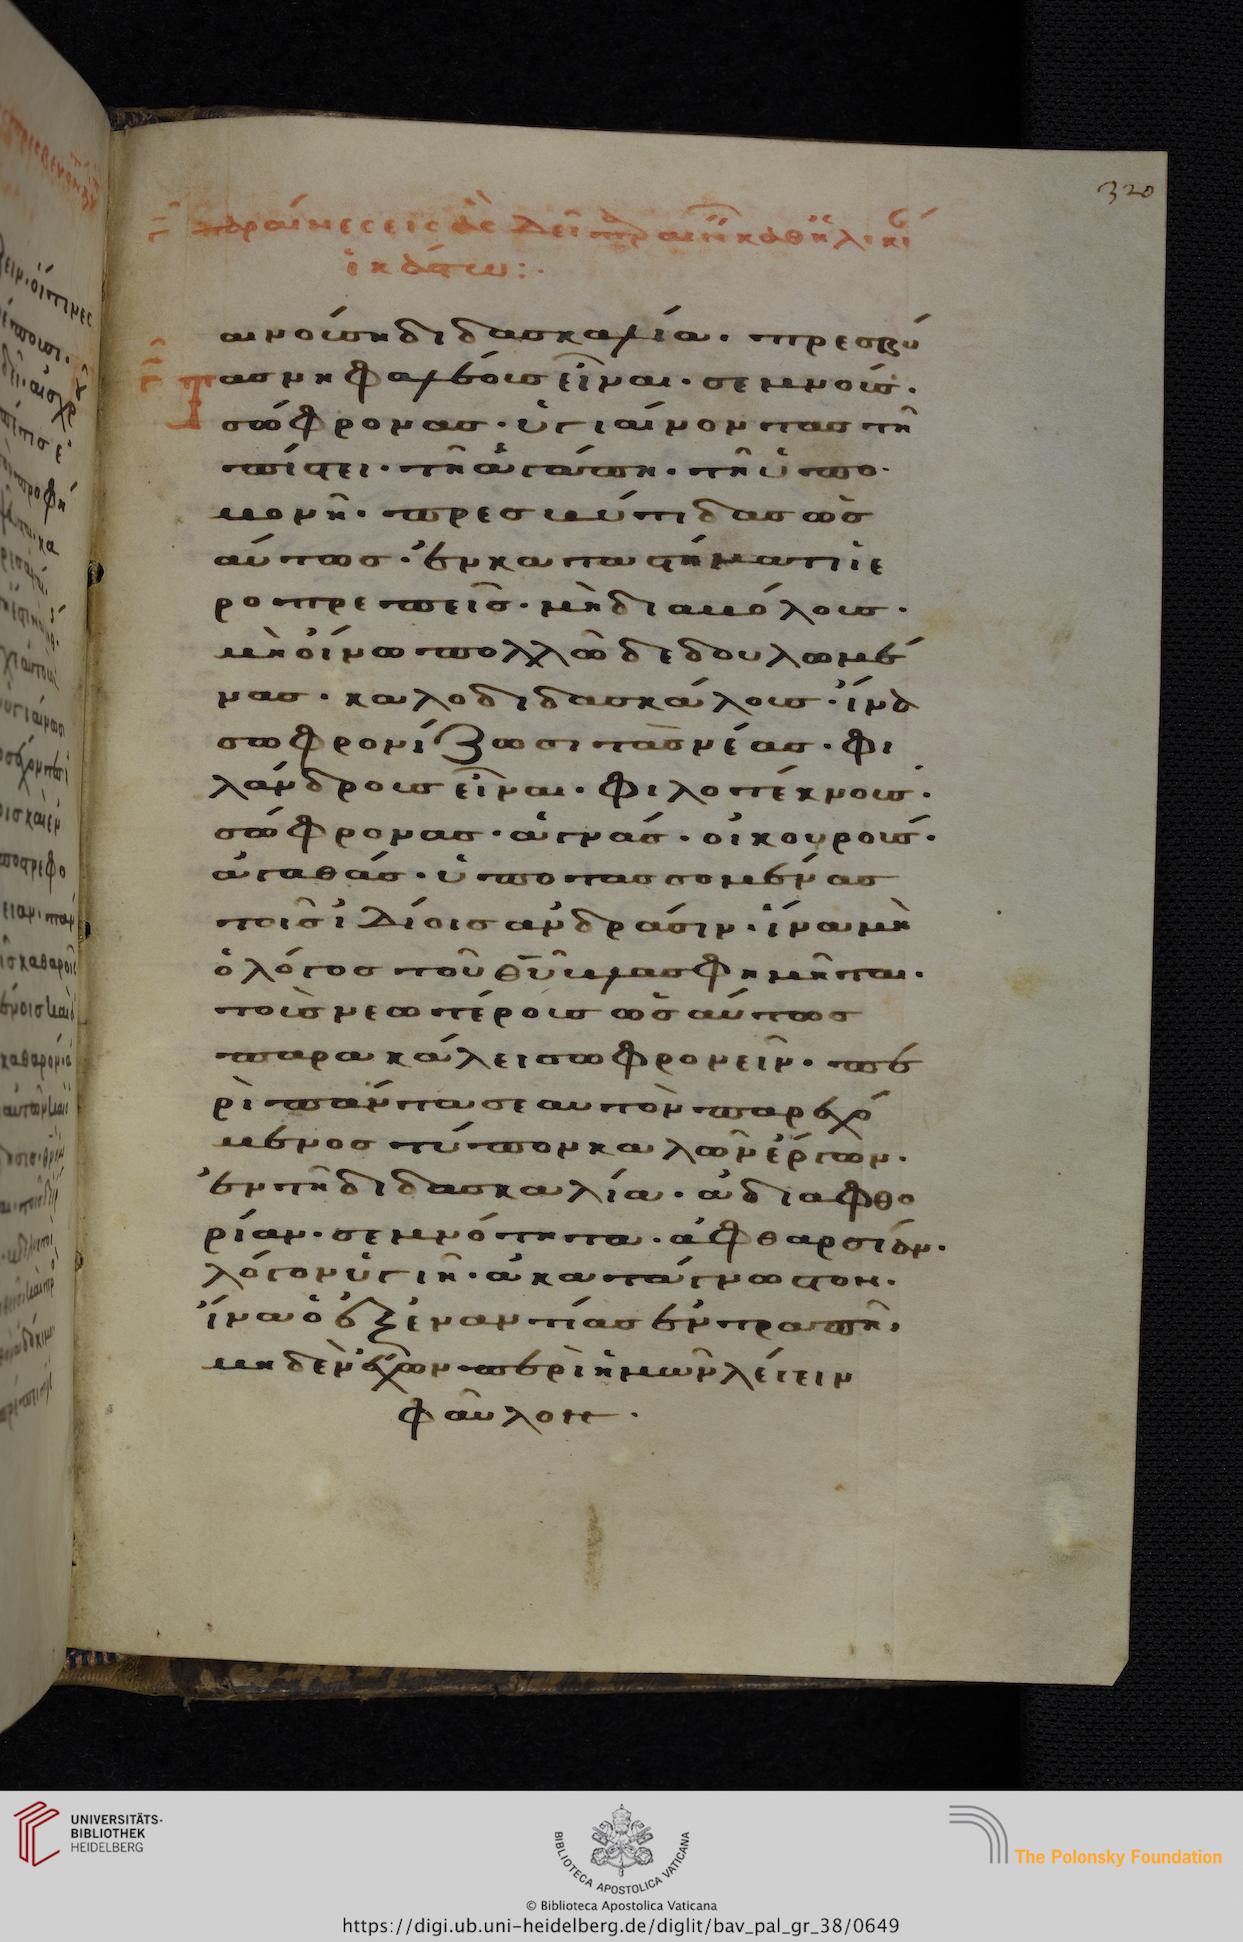 320
γ̅ παραίνεσεις ἃς δεῖ
αινούση διδασκαλία. πρεσβύ
τασ νηφαλέουσ εἶναι. σεμνούσ.
σώφρονασ. ὑγιαίνοντασ τῆ
πίστει. τῆ ἀγάπη. τῆ ὑπο
μονῆ. πρεσβύτιδασ ὡσ
αύτωσ. ἐν καταστήματι ἱε
ροπρεπεῖσ. μὴ διαβόλουσ.
μὴ οἴνω πολλῶ δεδουλωμέ
νασ. καλοδιδασκάλουσ. ἵνα
σωφρονίζωσι τὰσ νέασ. φι
λάνδρουσ εἶναι. φιλοτέκνουσ.
σώφρονασ. ἁγνάσ. οἰκουρούσ.
ἀγαθάσ. ὑποτασσομένασ
τοῖσ ἰδίοισ ἀνδράσιν. ἵνα μὴ
ὁ λόγοσ τοῦ θ̅υ̅ βλασφημῆται.
τοὺσ νεωτέρουσ ὡσ αύτωσ
παρακάλει σωφρονεῖν. πε
ρὶ πάντα σεαυτὸν παρεχό
μενοσ τύπον καλῶν ἔργων.
ἐν τῆ διδασκαλία. ἀδιαφθο
ρίαν. σεμνότητα. ἀφθαρσίαν.
λόγον ὑγιῆ. ἀκατάγνωστον.
ἵνα ὁ ἐξ ἐναντίασ ἐντραπῆ.
μηδὲν ἔχων περὶ ἡμῶν λέγειν
φαῦλον.
UNIVERSITÄTS-
BIBLIOTHEK
HEIDELBERG
BIBLIOTECA APOSTOLICA VATICANA
The Polonsky Foundation
© Biblioteca Apostolica Vaticana
https://digi.ub.uni-heidelberg.de/diglit/bav_pal_gr_38/0649